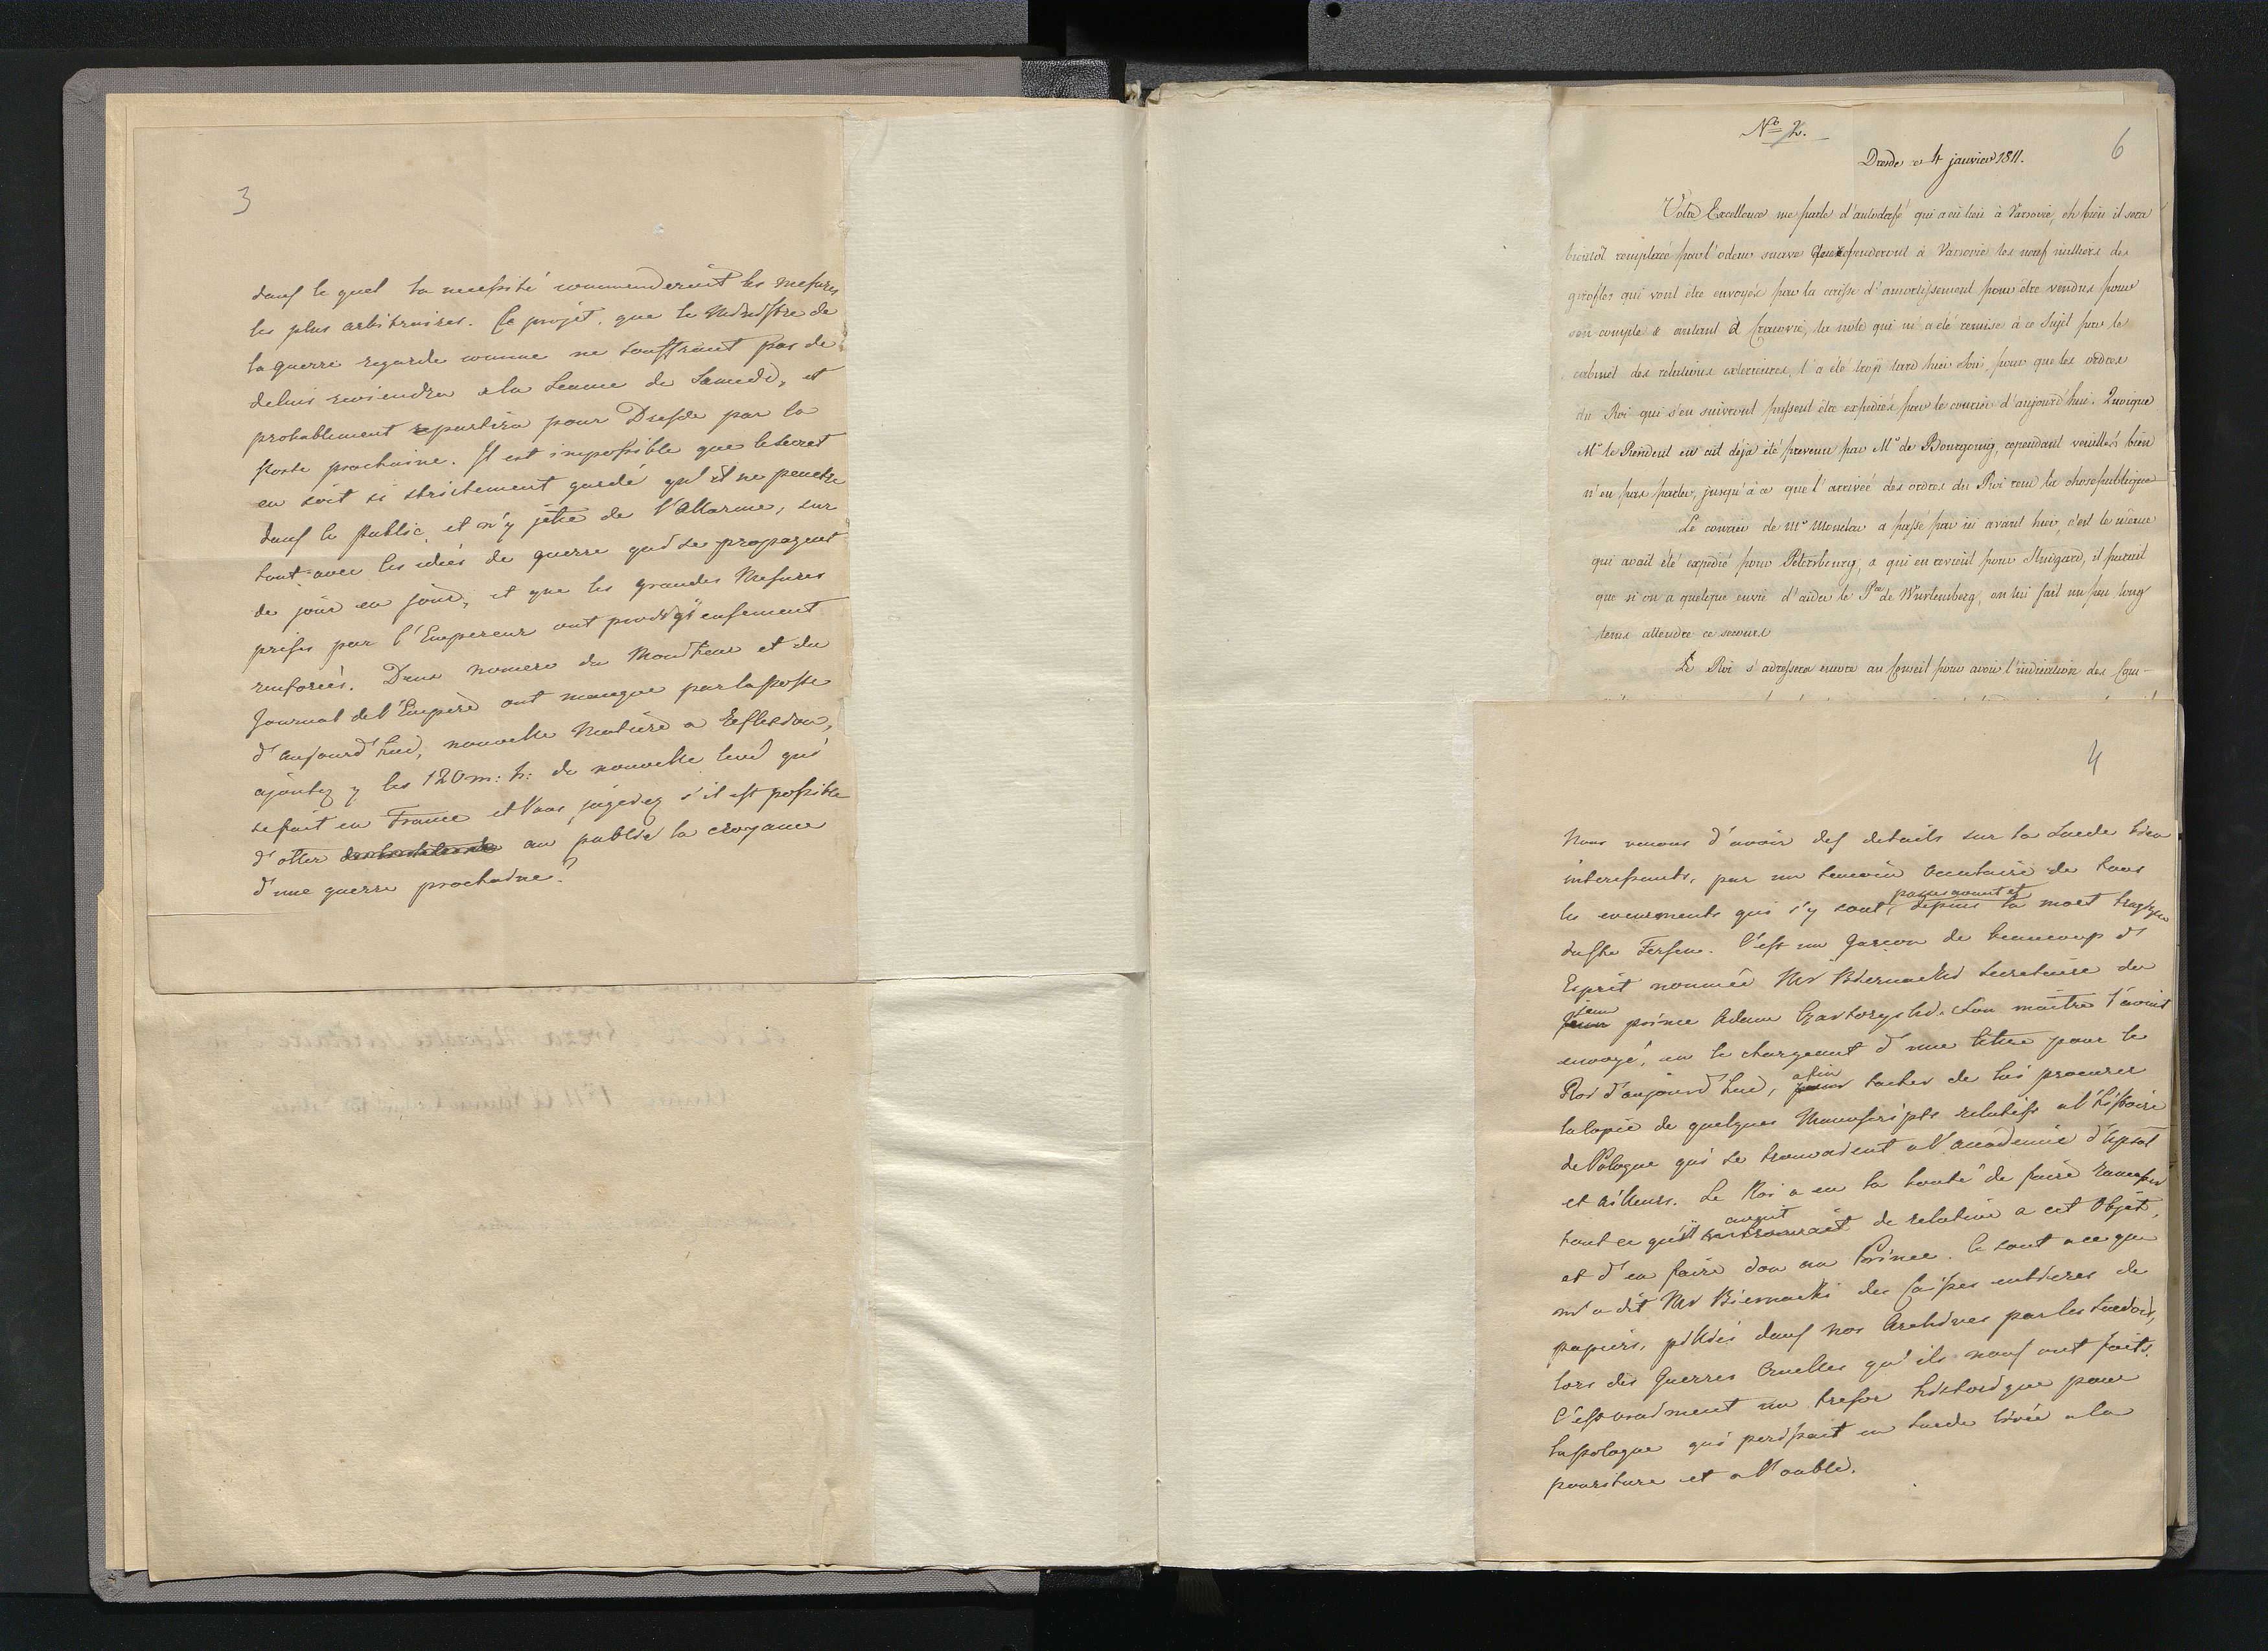 3
dans le quel la necessité commenderoit les mesures
les plus arbitraires. Ce projet, que le Ministre de
la guerre regarde comme ne souffrant pas de
delais reviendra a la Seance de Samedi, et
probablement repartira pour Dresde par la
Poste prochaine. Il est impossible que le secret
en soit si strictement gardé qu'il ne penetre
dans le public, et n'y jette de l'Allarme, sur
tout avec les idées de guerre qui se propagent
de jour en jour, et que les grandes Mesures
prises par l'Empereur ont prodigieusement
renforcées. Deux numero du Moniteur et du
Journal de l'Empire ont manque par la poste
d'aujourd'hui, nouvelle Matiere a Reflexion,
ajoutez y les 120 m: h: de nouvelle levé qui
se fait en France et Vous jugerez s'il est possible
d'otter au public la croyance
d'une guerre prochaine?
Nº 2.
6
Dresde ce 4 janvier 1811.
Votre Excellence me parle d'autodafé qui a eu lieu à Varsovie, eh bien il sera
bientôt remplacé par l'odeur suave que rependeront à Varsovie les neuf milliers de
girofles qui vont être envoyés par la caisse d'amortissement pour être vendus pour
son compte & autant à Cracovie, la note qui m'a été remise à ce sujet par le
cabinet des relations exterieures, l'a été trop tard hier soir, pour que les ordres
du Roi qui s'en suivront puissent être expediés par le courier d'aujourd'hui. Quoique
Mr le Resident en ait déjà été prevenu par Mr de Bourgoing, cependant veuillés bien
n'en pas parler, jusqu'à ce que l'arrivée des ordres du Roi rend la chose publique
Le courier de Mr passé par ici avant hier, c'est le même
qui avait été expedié pour Petersbourg, & qui en revient pour Stutgard, il parait
que si on a quelque envie d'aider le Pce de Wurtemberg, on lui fait un peu long
tems attendre ce secours
Le Roi s'adressera encore au Conseil pour avoir l'indication des Com-
4
Nous venons d'avoir des details sur la Suede bien
interessants, par un temoin occulaire de tous
les evenements qui s'y sont passés avant et depuis la mort tragique
du Cte Fersen. C'est un garçon de beaucoup d'
Esprit nommé Mr Biernacki Secretaire du
jeun prince Adam Czartoryski. Son maitre l'avoit
envoyé, en le chargeant d'une lettre pour le
Roi d'aujourd'hui, afin tacher de lui procurer
la Copie de quelques Manuscripts relatifs a l'histoire
de Pologne qui se trouvaient a l'academie d'Upsal
et ailleurs. Le Roi a eu la bonté de faire ramasser
tout ce qu'il avoit de relative a cet Objet,
et d'en faire don au Prince. Ce sont a ce que
m'a dit Mr Biernacki des Caisses entieres de
papiers, pillés dans nos Archives par les Suedois,
lors des Guerres Cruelles qu'ils nous ont faits.
C'est vraiment un tresor historique pour
la Pologne qui perissait en Suede livré a la
pouriture et a l'oubli.